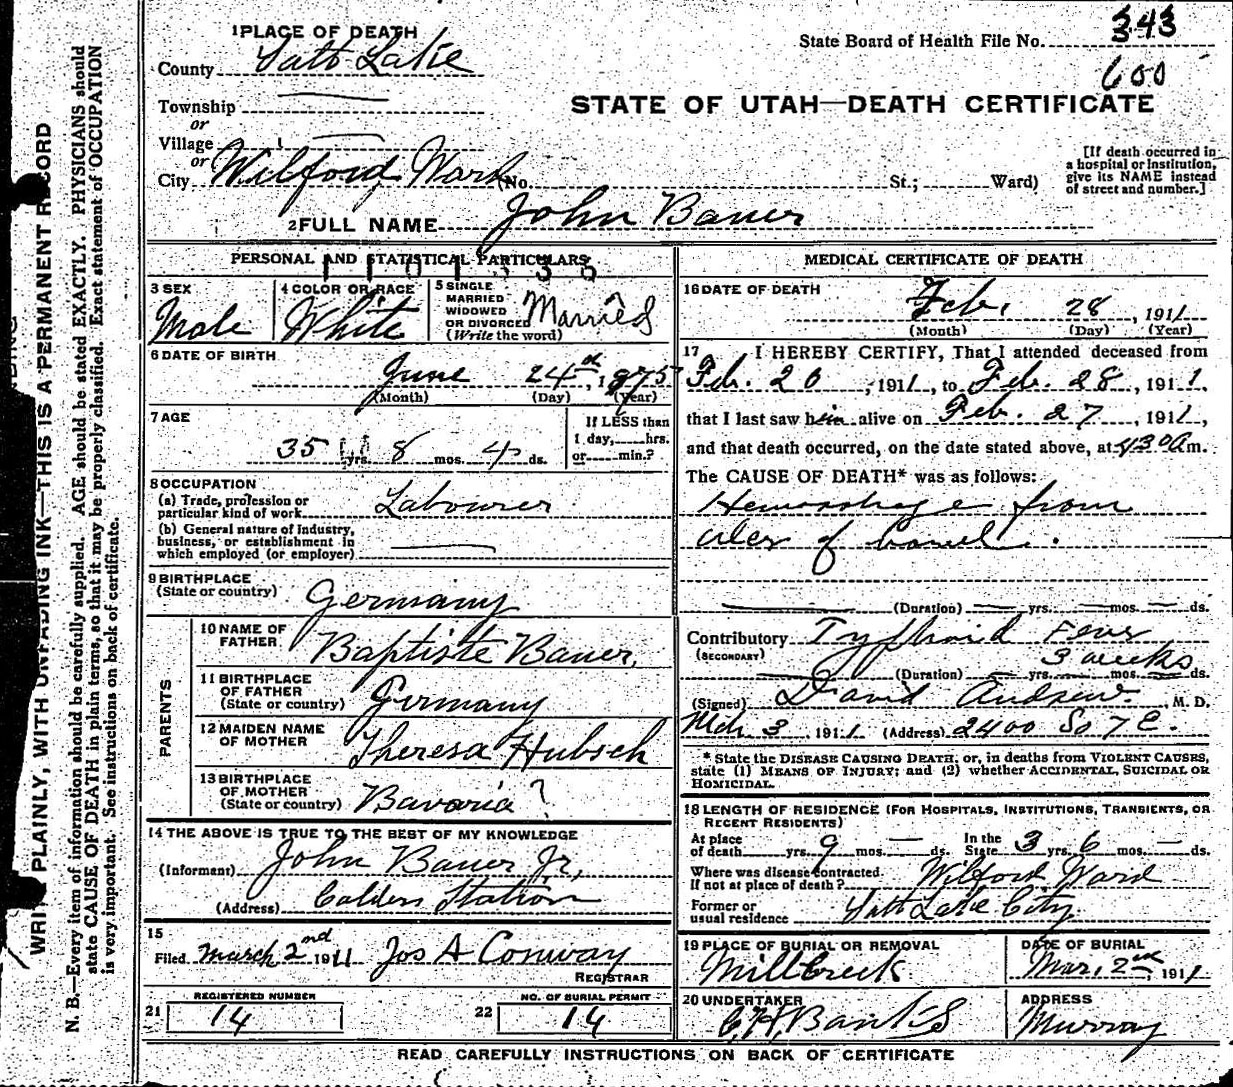 1 PLACE OF DEATH
County Salt Lake
Township
or
Village
or
City Wilford Ward (No. St.; Ward)
State Board of Health File No. 343
600
STATE OF UTAH—DEATH CERTIFICATE
[If death occurred in
a hospital or institution,
give its NAME instead
of street and number.]
2 FULL NAME John Bauer
PERSONAL AND STATISTICAL PARTICULARS
1101336
3 SEX
Male
4 COLOR OR RACE
White
5 SINGLE
MARRIED
WIDOWED
OR DIVORCED
(Write the word)
Married
6 DATE OF BIRTH
June 24th, 1875
(Month) (Day) (Year)
7 AGE
35 yrs. 8 mos. 4 ds.
If LESS than
1 day, hrs.
or min.?
8 OCCUPATION
(a) Trade, profession or
particular kind of work Labourer
(b) General nature of industry,
business, or establishment in
which employed (or employer)
9 BIRTHPLACE
(State or country) Germany
PARENTS
10 NAME OF
FATHER Baptiste Bauer,
11 BIRTHPLACE
OF FATHER
(State or country) Germany
12 MAIDEN NAME
OF MOTHER Theresa Hubsch
13 BIRTHPLACE
OF MOTHER
(State or country) Bavaria?
14 THE ABOVE IS TRUE TO THE BEST OF MY KNOWLEDGE
(Informant) John Bauer Jr,
(Address) Calders Station
15
Filed March 2nd 1911 Jos A Conway
REGISTRAR
REGISTERED NUMBER
21 14
NO. OF BURIAL PERMIT
22 14
MEDICAL CERTIFICATE OF DEATH
16 DATE OF DEATH
Feb. 28, 1911
(Month) (Day) (Year)
17 I HEREBY CERTIFY, That I attended deceased from
Feb. 20, 1911, to Feb. 28, 1911,
that I last saw him alive on Feb. 27, 1911,
and that death occurred, on the date stated above, at 4 30 a m.
The CAUSE OF DEATH* was as follows:
Hemorrhage from
ulcer of bowel.
(Duration) yrs. mos. ds.
Contributory Typhoid Fever
(SECONDARY)
3 weeks
(Duration) yrs. mos. ds.
(Signed) David Andrew. M. D.
Mch 3, 1911 (Address) 2400 So 7 E.
* State the DISEASE CAUSING DEATH, or, in deaths from VIOLENT CAUSES,
state (1) MEANS OF INJURY; and (2) whether ACCIDENTAL, SUICIDAL OR
HOMICIDAL.
18 LENGTH OF RESIDENCE (FOR HOSPITALS, INSTITUTIONS, TRANSIENTS, OR
RECENT RESIDENTS)
At place In the
of death yrs. 9 mos. — ds. State 3 yrs. 6 mos. — ds.
Where was disease contracted.
If not at place of death? Wilford Ward
Former or
usual residence Salt Lake City.
19 PLACE OF BURIAL OR REMOVAL
Millcreek
DATE OF BURIAL
Mar. 2nd, 1911
20 UNDERTAKER
Banks
ADDRESS
Murray
READ CAREFULLY INSTRUCTIONS ON BACK OF CERTIFICATE
WRITE PLAINLY, WITH UNFADING INK—THIS IS A PERMANENT RECORD
N. B.—Every item of information should be carefully supplied. AGE should be stated EXACTLY. PHYSICIANS should
state CAUSE OF DEATH in plain terms, so that it may be properly classified. Exact statement of OCCUPATION
is very important. See instructions on back of certificate.